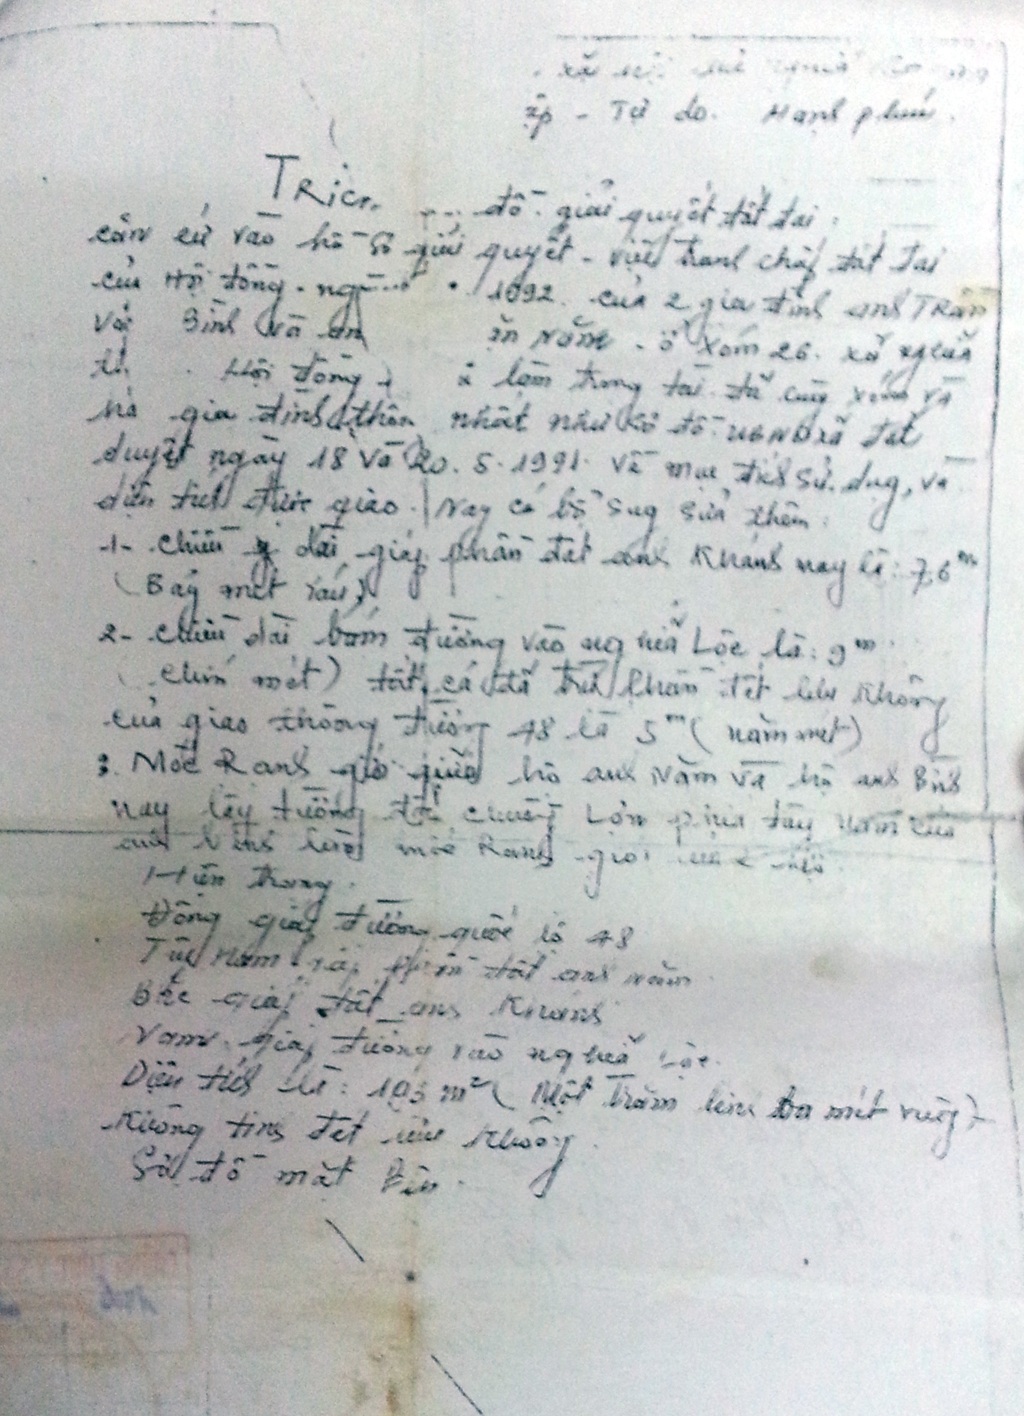 xã hội chủ nghĩa
ập - Tự do. Hạnh phúc.
Trích đồ giải quyết đất đai:
căn cứ vào hồ sơ giải quyết - việc tranh chấp đất đai
của Hội đồng. 1992. của 2 gia đình anh Trần
Bình và an Năm - ở Xóm 26. xã nghĩa
Hội đồng làm trọng tài. đã cùng xóm và
gia đình thôn nhất như sơ đồ UBND xã đã
duyệt ngày 18 và 20.5.1991. về mục đích sử dụng, và
diện tích được giao. Nay có bổ sung sửa thêm:
-1- chiều dài giáp phần đất anh Khánh nay là: 7,6m
(Bảy mét sáu)
2- chiều dài bám đường vào nghĩa Lộc là: 9m
(chín mét) tất cả đã trừ phần đất lưu không
của giao thông đường 48 là 5m (năm mét)
3. Mốc Ranh giới giữa hộ anh Năm và hộ anh Bình
nay lấy tường chuồng Lợn phía tây nam của
anh Bình làm mốc Ranh giới 2 hộ.
Hiện trạng.
Đông giáp đường quốc lộ 48
Tây Nam giáp đất anh Năm.
Bắc giáp đất anh Khánh
Nam. giáp đường vào nghĩa Lộc.
Diện tích là: 103 m² (Một trăm linh ba mét vuông)
Không tính đất lưu không.
Sơ đồ mặt bên.